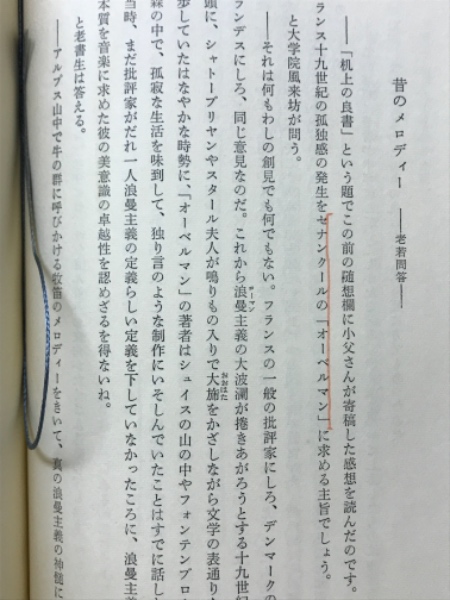 昔のメロディー ――老若問答――
――「机上の良書」という題でこの前の随想欄に小父さんが寄稿した感想を読んだのです。
ランス十九世紀の孤独感の発生をセナンクールの「オーベルマン」に求める主旨でしょう。
と大学院風来坊が問う。
――それは何もわしの創見でも何でもない。フランスの一般の批評家にしろ、デンマークの
ランデスにしろ、同じ意見なのだ。これから浪曼主義の大波瀾が捲きあがろうとする十九世紀
頭に、シャトーブリヤンやスタール夫人が鳴りもの入りで大旆をかざしながら文学の表通り
歩していたはなやかな時勢に、「オーベルマン」の著者はシュイスの山の中やフォンテンブロ
森の中で、孤寂な生活を味到して、独り言のような制作にいそしんでいたことはすでに話し
当時、まだ批評家がだれ一人浪曼主義の定義らしい定義を下していなかったころに、浪曼主
本質を音楽に求めた彼の美意識の卓越性を認めざるを得ないね。
と老書生は答える。
――アルプス山中で牛の群に呼びかける牧笛のメロディーをきいて、真の浪曼主義の神髄に